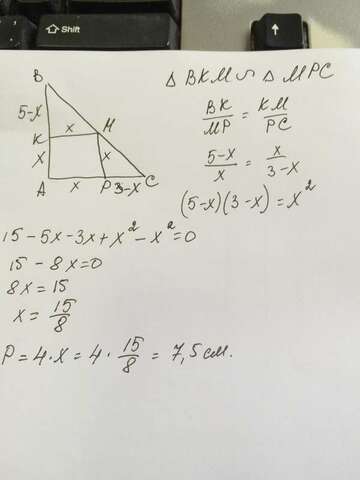 Shift
B
5-x
K
x
M
x
x
A
x
P
3-x
C
△ BKM ∽ △ MPC
BK/MP = KM/PC
5-x/x = x/3-x
(5-x)(3-x) = x²
15 - 5x - 3x + x² - x² = 0
15 - 8x = 0
8x = 15
x = 15/8
P = 4·x = 4 · 15/8 = 7,5 см.